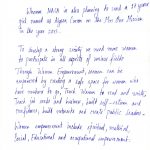 Whereas NASA is also planning to send a 17 years
girl named as Alyssa Carson in the Mars One Mission
in the year 2033.
To develop a strong society we need more women
to participate in all aspects of various fields.
Through Women Empowerment, women can be
empowered by creating a safe space for women who
have nowhere to go, teach women to read and write,
Teach job skills and business, build self-esteem and
confidence, build networks and create public leaders.
Women empowerment include spiritual, political,
Social, Educational and occupational empowerment.